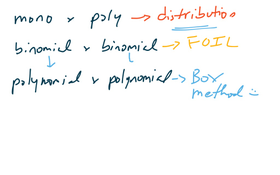 mono x poly → distribution
binomial x binomial → FOIL
polynomial x polynomial → Box
method :)